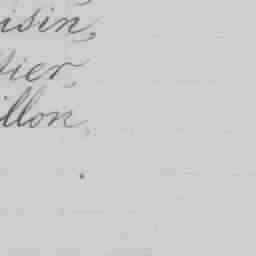 isin,
tier,
illon,